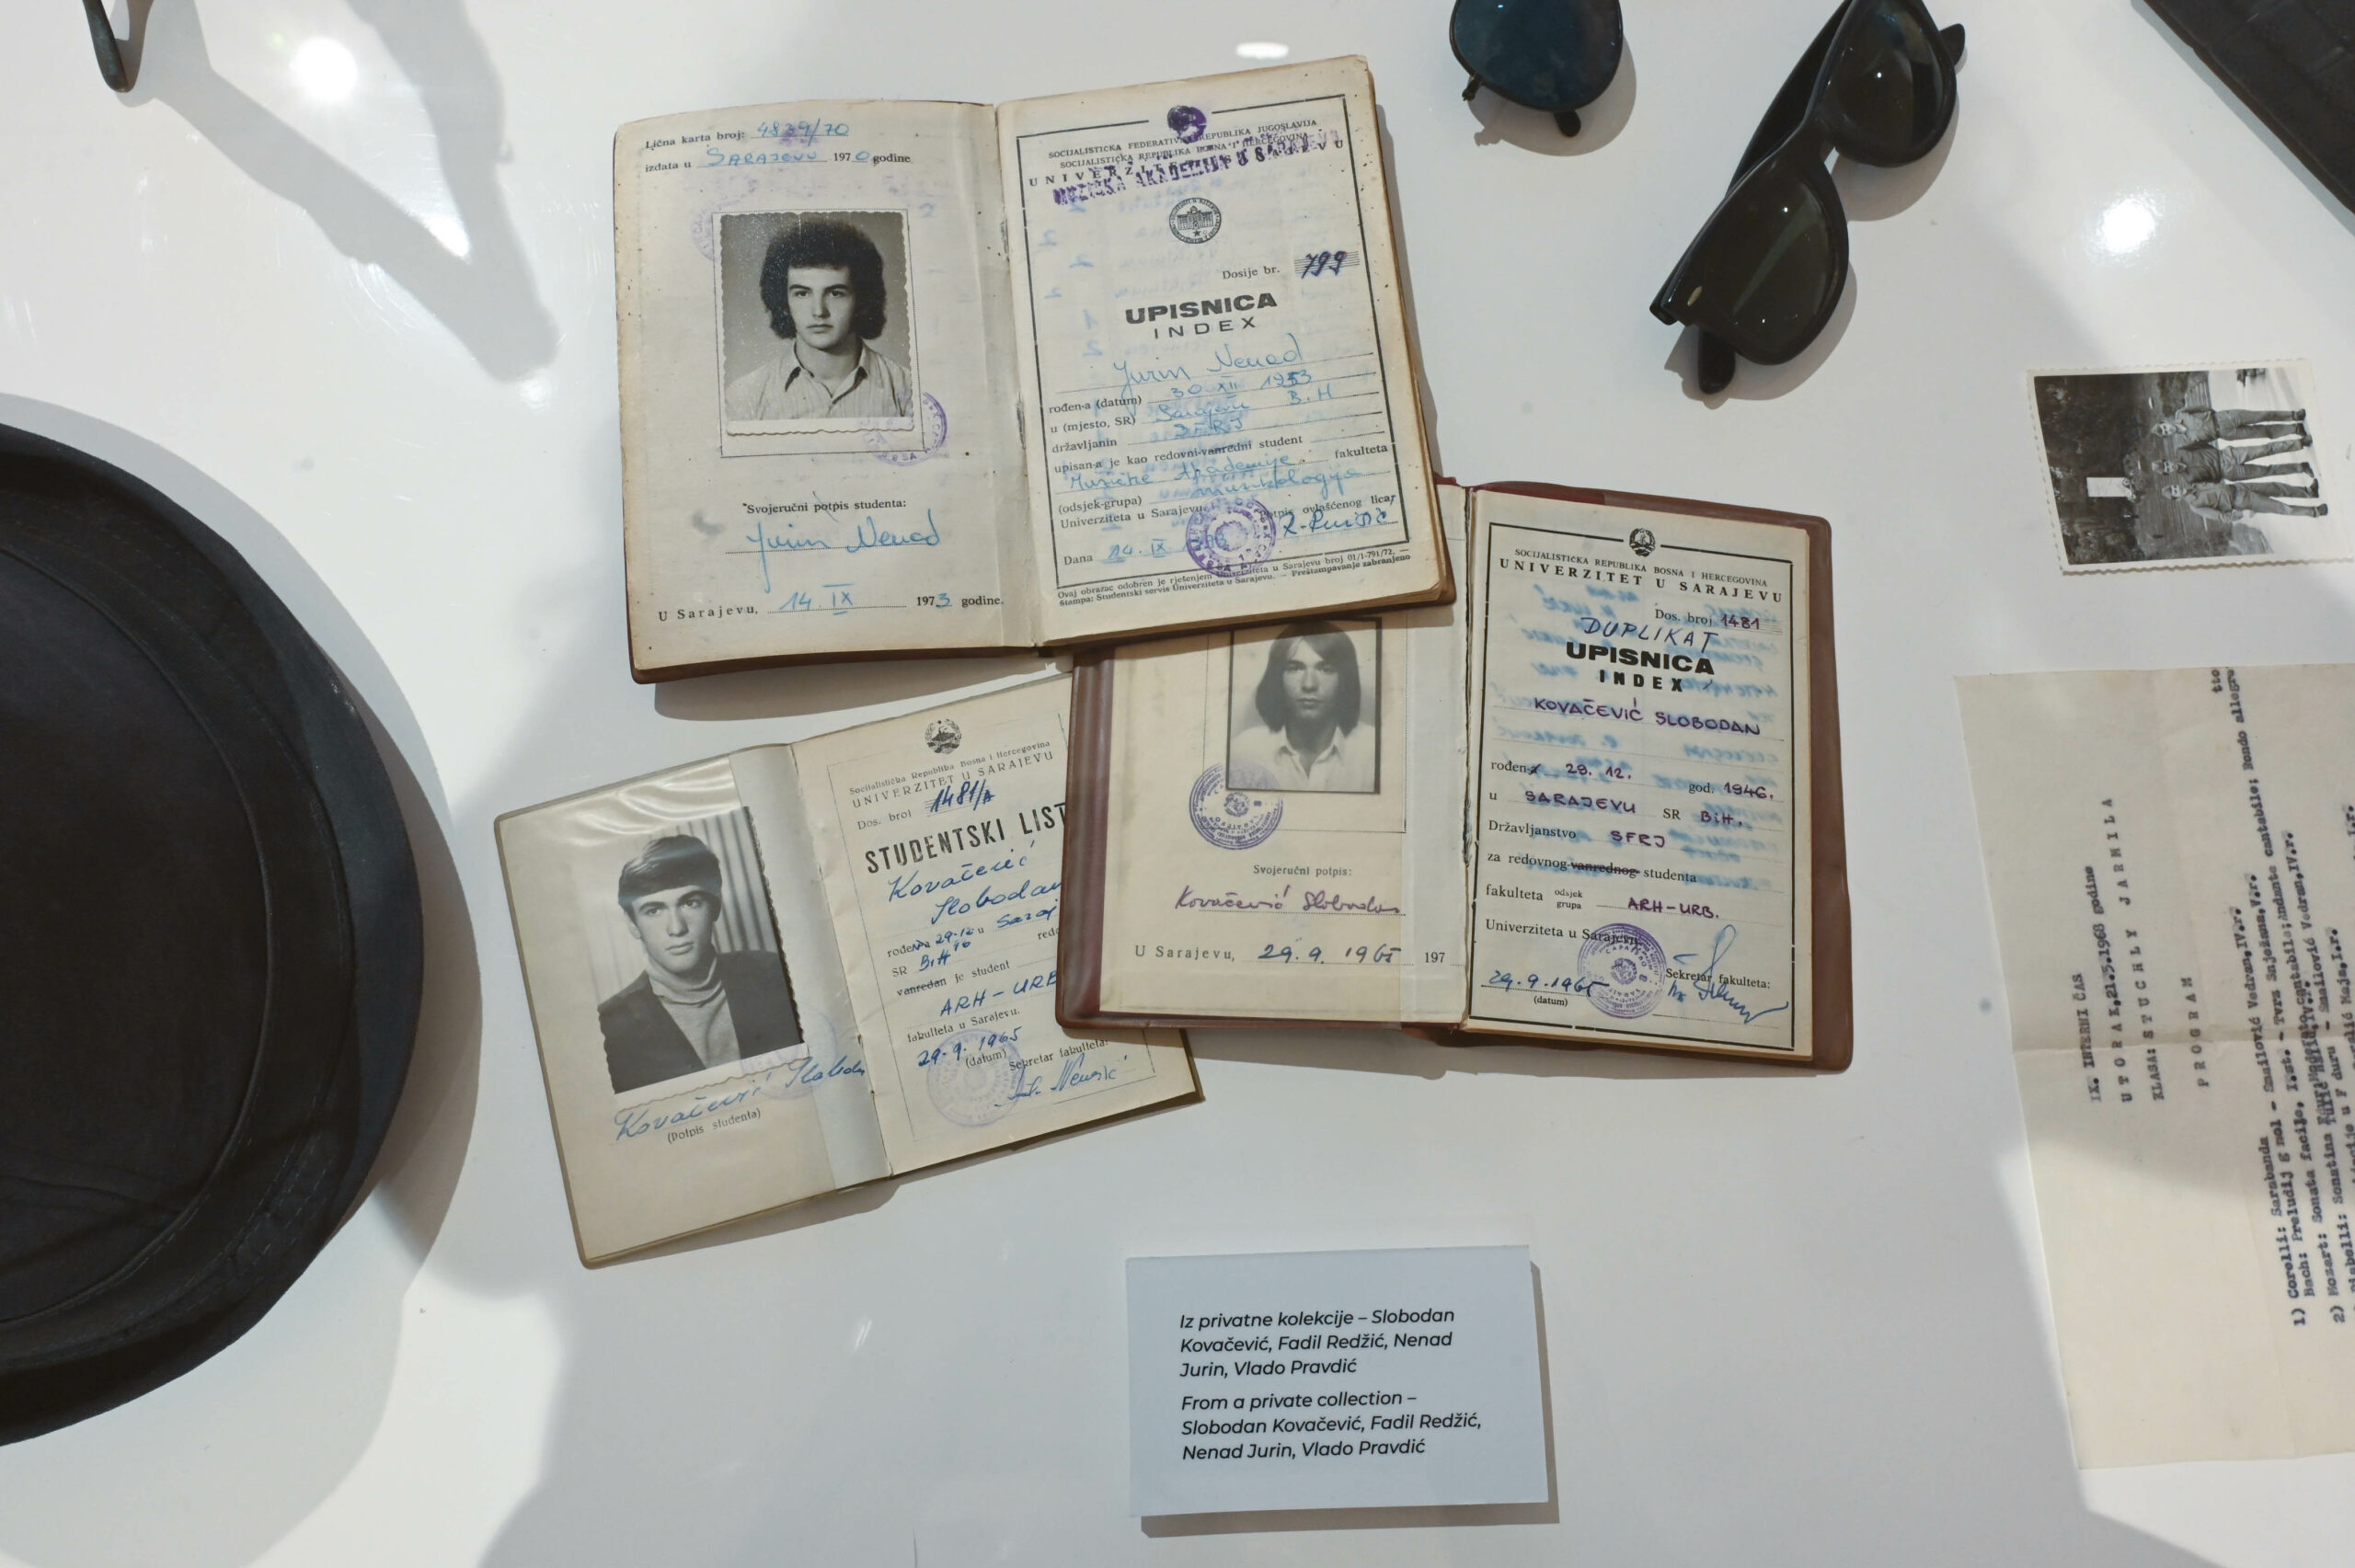 Lična karta broj: 4839/70
izdata u SARAJEVU 1970 godine
Svojeručni potpis studenta:
Jurin Nenad
U Sarajevu, 14. IX 1973 godine.
SOCIJALISTIČKA FEDERATIVNA REPUBLIKA JUGOSLAVIJA
SOCIJALISTIČKA REPUBLIKA BOSNA I HERCEGOVINA
UNIVERZITET U SARAJEVU
MUZIČKA AKADEMIJA U SARAJEVU
Dosije br. 799
UPISNICA
INDEX
Jurin Nenad
rođen-a (datum) 30 XII 1953
u (mjesto, SR) Sarajevu B.H
državljanin SFRJ
upisan-a je kao redovni-vanredni student
Muzičke Akademije fakulteta
(odsjek-grupa) muzikologija
Univerziteta u Sarajevu. potpis ovlašćenog lica,
Dana 14. IX
Ovaj obrazac odobren je rješenjem Univerziteta u Sarajevu broj 01/1-791/72. —
Štampa: Studentski servis Univerziteta u Sarajevu. — Preštampavanje zabranjeno
SOCIJALISTIČKA REPUBLIKA BOSNA I HERCEGOVINA
UNIVERZITET U SARAJEVU
Dos. broj 1481
DUPLIKAT
UPISNICA
INDEX
KOVAČEVIĆ SLOBODAN
rođen 29. 12. god. 1946.
u SARAJEVU SR BiH.
Državljanstvo SFRJ
za redovnog-vanrednog studenta
fakulteta odsjek grupa ARH-URB.
Univerziteta u Sarajevu.
Sekretar fakulteta:
29.9.1965
(datum)
Svojeručni potpis:
Kovačević Slobodan
U Sarajevu, 29.9.1965 197
Socijalistička Republika Bosna i Hercegovina
UNIVERZITET U SARAJEVU
Dos. broj 1481/A
STUDENTSKI LIST
Kovačević
Slobodan
rođen 29.12 u Saraj
SR BiH
vanredan je student
ARH-URB
fakulteta u Sarajevu.
29.9.1965
(datum) Sekretar fakulteta:
Kovačević Slobodan
(Potpis studenta)
IX. INTERNI ČAS
UTORAK, 21.5.1968 godine
KLASA: STUCHLY JARMILA
PROGRAM
1) Corelli: Sarabanda
Bach: Preludij g mol - Smailović Vedran, IV.r.
2) Mozart: Sonatina
Iz privatne kolekcije – Slobodan
Kovačević, Fadil Redžić, Nenad
Jurin, Vlado Pravdić
From a private collection –
Slobodan Kovačević, Fadil Redžić,
Nenad Jurin, Vlado Pravdić